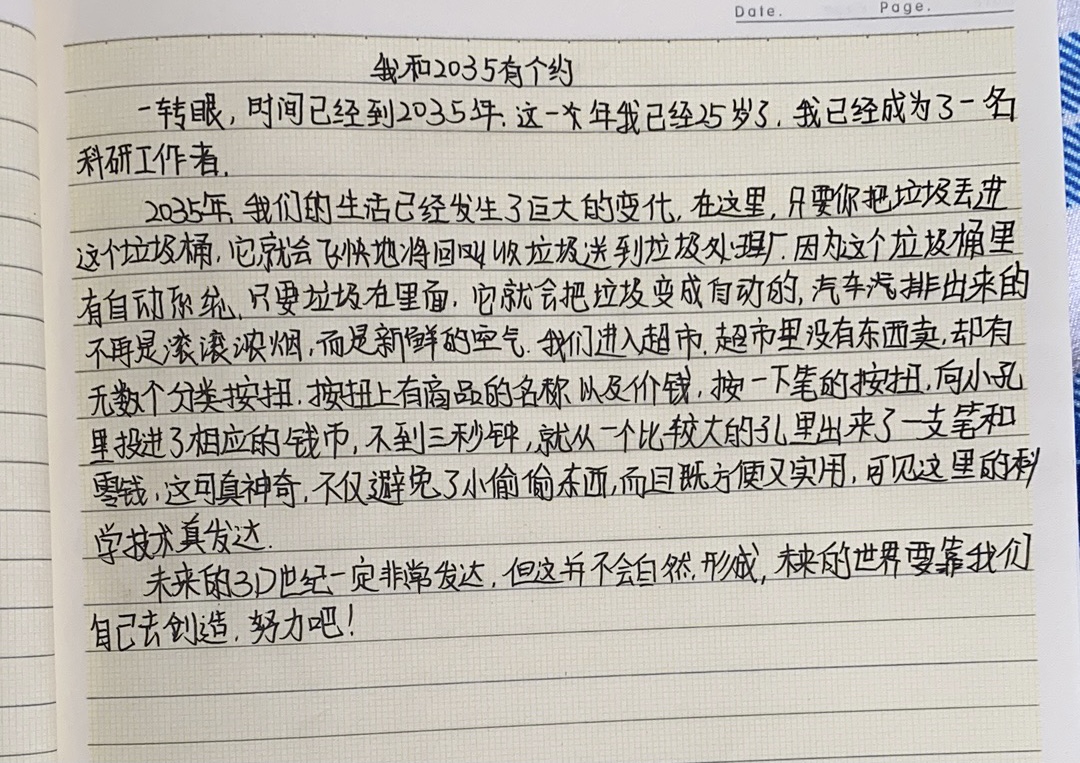 Date.
Page.
我和2035有个约
一转眼，时间已经到2035年。这一年我已经25岁了，我已经成为了一名
科研工作者。
2035年，我们的生活已经发生了巨大的变化，在这里，只要你把垃圾丢进
这个垃圾桶，它就会飞快地将回收垃圾送到垃圾处理厂。因为这个垃圾桶里
有自动系统，只要垃圾在里面，它就会把垃圾变成自动的，汽车汽排出来的
不再是滚滚浓烟，而是新鲜的空气。我们进入超市，超市里没有东西卖，却有
无数个分类按扭，按扭上有商品的名称以及价钱，按一下笔的按扭，向小孔
里投进了相应的钱币，不到三秒钟，就从一个比较大的孔里出来了一支笔和
零钱，这可真神奇，不仅避免了小偷偷东西，而且既方便又实用，可见这里的科
学技术真发达。
未来的3D世纪一定非常发达，但这并不会自然形成，未来的世界要靠我们
自己去创造，努力吧！